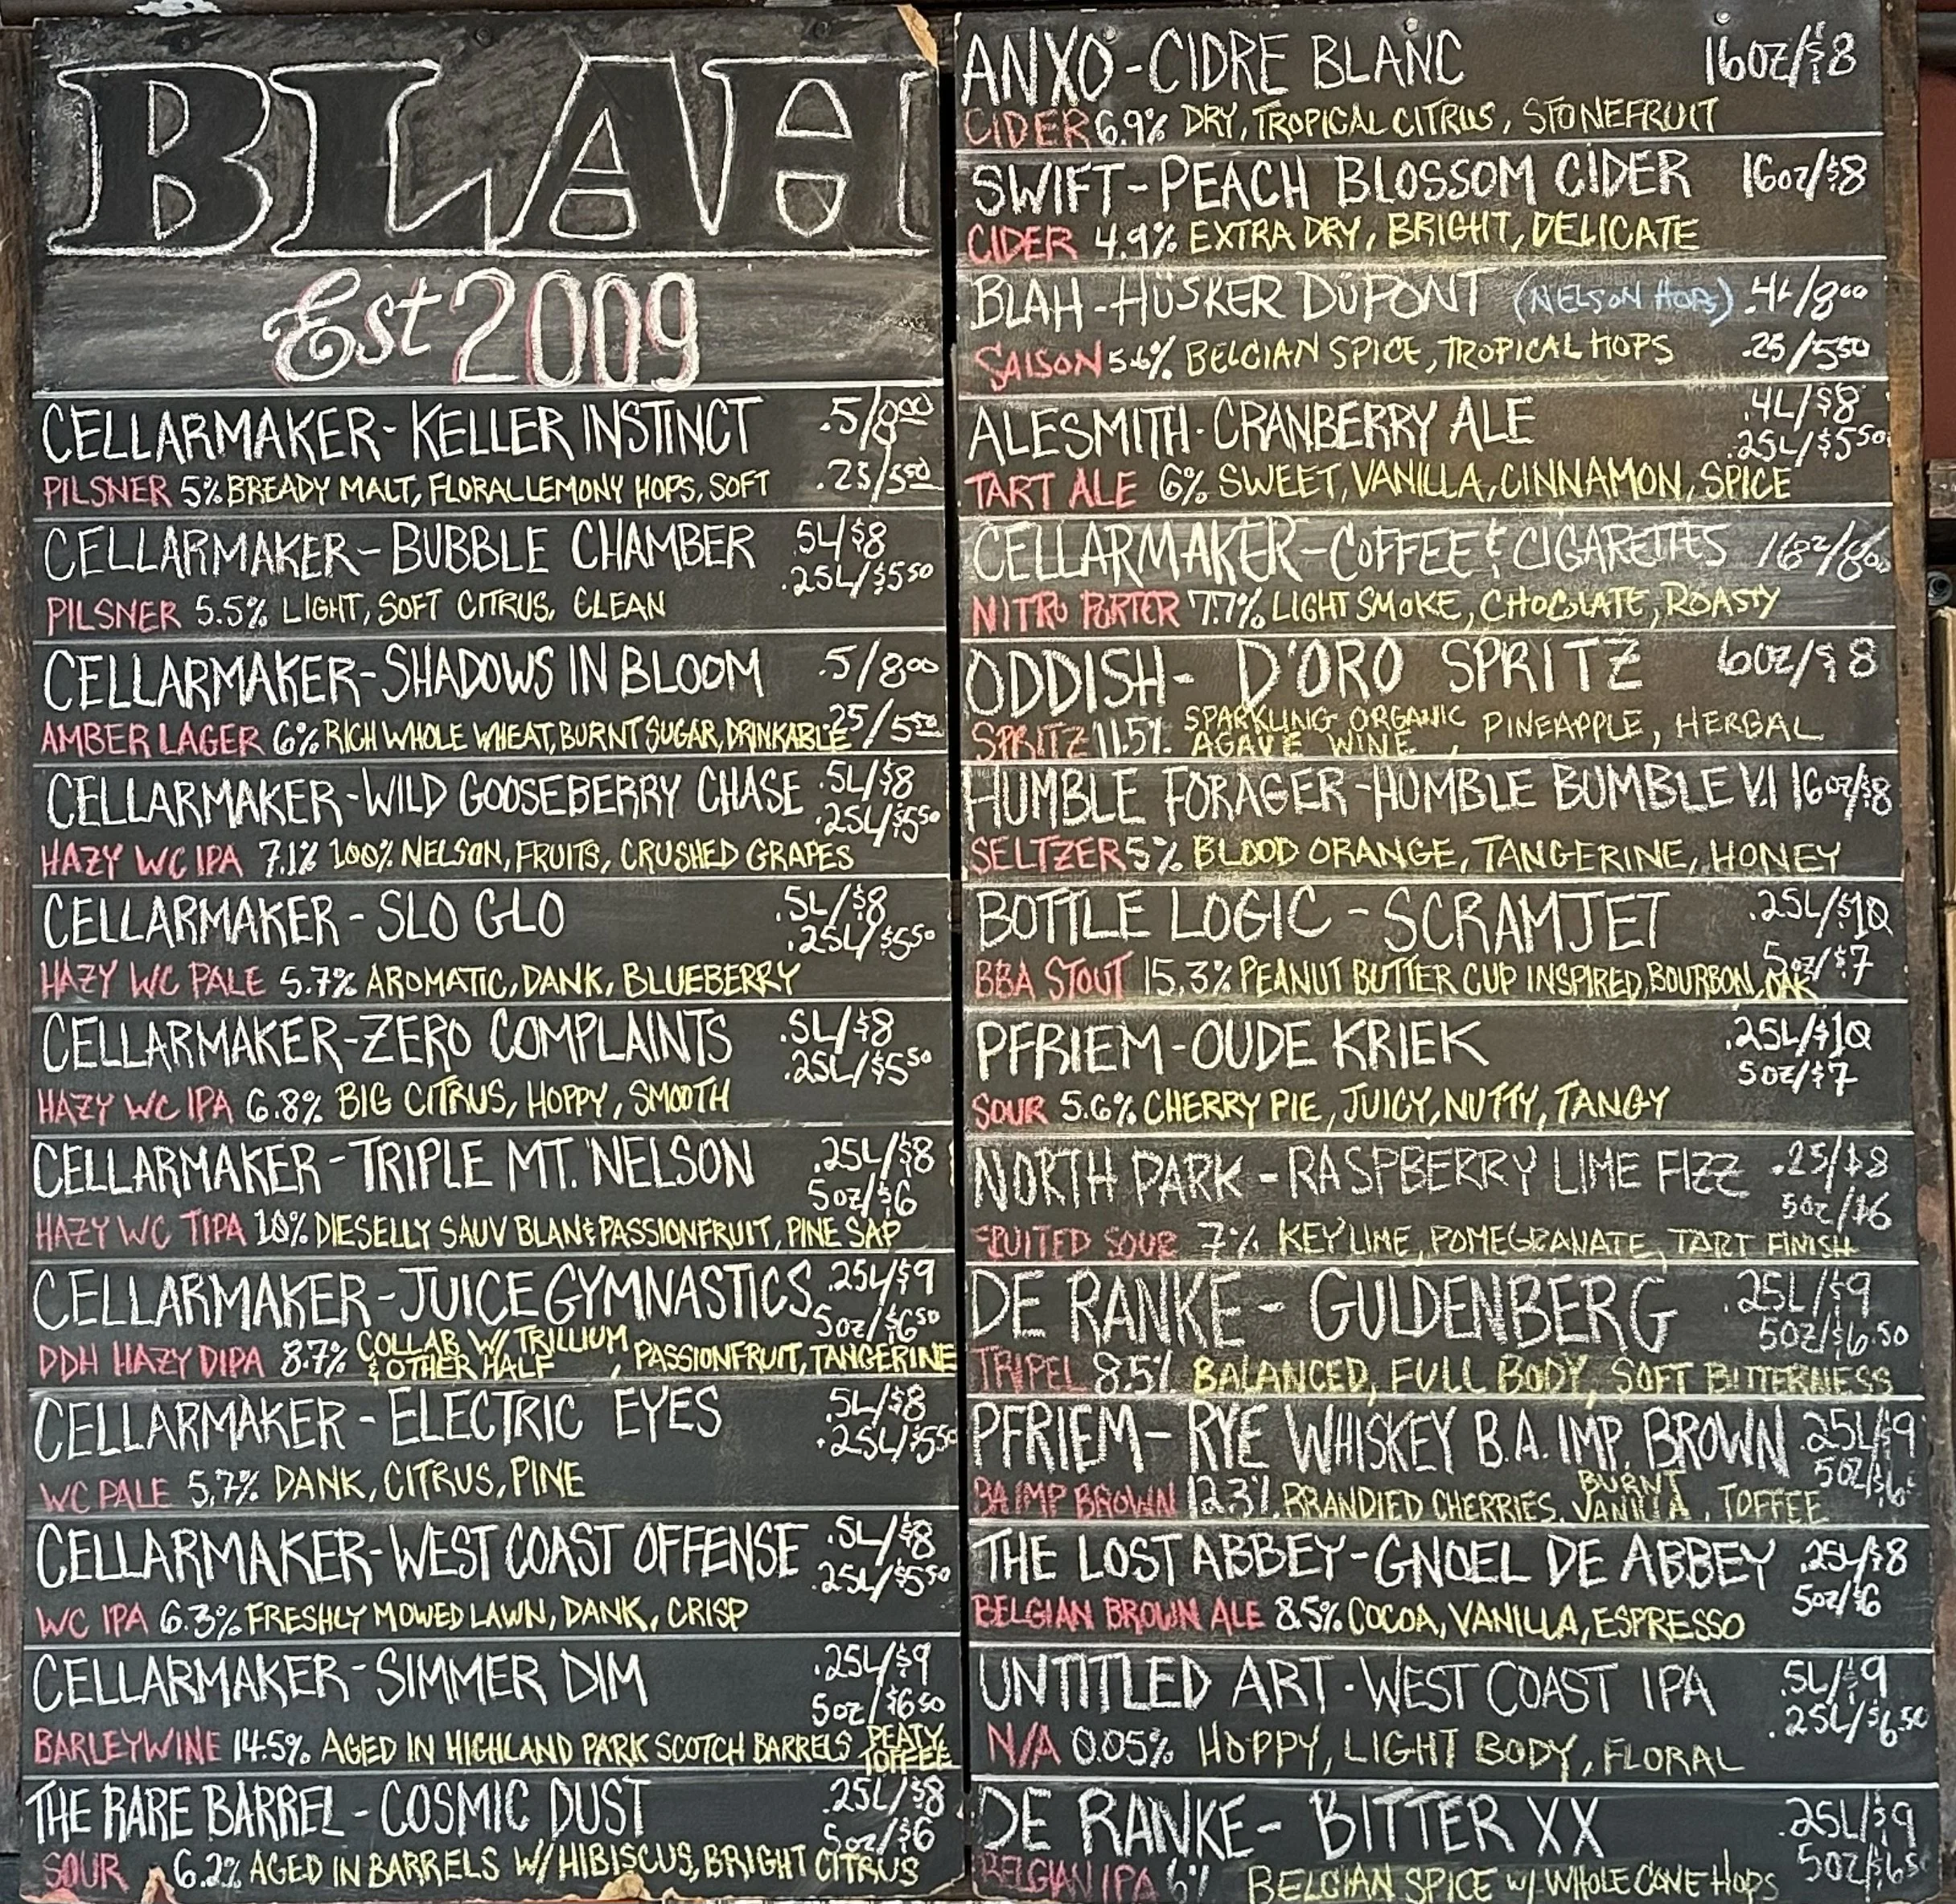 BLAH
Est 2009
CELLARMAKER-KELLER INSTINCT .5/8⁰⁰
PILSNER 5% BREADY MALT, FLORAL LEMONY HOPS, SOFT .25/5⁵⁰
CELLARMAKER-BUBBLE CHAMBER .5L/$8
.25L/$5⁵⁰
PILSNER 5.5% LIGHT, SOFT CITRUS, CLEAN
CELLARMAKER-SHADOWS IN BLOOM .5/8⁰⁰
AMBER LAGER 6% RICH WHOLE WHEAT, BURNT SUGAR, DRINKABLE .25/5⁵⁰
CELLARMAKER-WILD GOOSEBERRY CHASE .5L/$8
.25L/$5⁵⁰
HAZY WC IPA 7.1% 100% NELSON, FRUITS, CRUSHED GRAPES
CELLARMAKER-SLO GLO .5L/$8
.25L/$5⁵⁰
HAZY WC PALE 5.7% AROMATIC, DANK, BLUEBERRY
CELLARMAKER-ZERO COMPLAINTS .5L/$8
.25L/$5⁵⁰
HAZY WC IPA 6.8% BIG CITRUS, HOPPY, SMOOTH
CELLARMAKER-TRIPLE MT. NELSON .25L/$8
5oz/$6
HAZY WC TIPA 10% DIESELLY SAUV BLAN & PASSIONFRUIT, PINE SAP
CELLARMAKER-JUICE GYMNASTICS .25L/$9
5oz/$6⁵⁰
DDH HAZY DIPA 8.7% COLLAB W/ TRILLIUM & OTHER HALF, PASSIONFRUIT, TANGERINE
CELLARMAKER-ELECTRIC EYES .5L/$8
.25L/$5⁵⁰
WC PALE 5.7% DANK, CITRUS, PINE
CELLARMAKER-WEST COAST OFFENSE .5L/$8
.25L/$5⁵⁰
WC IPA 6.3% FRESHLY MOWED LAWN, DANK, CRISP
CELLARMAKER-SIMMER DIM .25L/$9
5oz/$6⁵⁰
BARLEYWINE 14.5% AGED IN HIGHLAND PARK SCOTCH BARRELS PEATY TOFFEE
THE RARE BARREL-COSMIC DUST .25L/$8
5oz/$6
SOUR 6.2% AGED IN BARRELS W/ HIBISCUS, BRIGHT CITRUS
ANXO-CIDRE BLANC 16OZ/$8
CIDER 6.9% DRY, TROPICAL CITRUS, STONEFRUIT
SWIFT-PEACH BLOSSOM CIDER 16oz/$8
CIDER 4.9% EXTRA DRY, BRIGHT, DELICATE
BLAH-HÜSKER DÜPONT (NELSON HOPS) .4L/8⁰⁰
SAISON 5.6% BELGIAN SPICE, TROPICAL HOPS .25/5⁵⁰
ALESMITH-CRANBERRY ALE .4L/$8
.25L/$5⁵⁰
TART ALE 6% SWEET, VANILLA, CINNAMON, SPICE
CELLARMAKER-COFFEE & CIGARETTES 16oz/8⁰⁰
NITRO PORTER 7.7% LIGHT SMOKE, CHOCOLATE, ROASTY
ODDISH- D'ORO SPRITZ 6OZ/$8
SPRITZ 11.5% SPARKLING ORGANIC AGAVE WINE, PINEAPPLE, HERBAL
HUMBLE FORAGER-HUMBLE BUMBLE V.1 16oz/$8
SELTZER 5% BLOOD ORANGE, TANGERINE, HONEY
BOTTLE LOGIC-SCRAMJET .25L/$10
5oz/$7
BBA STOUT 15.3% PEANUT BUTTER CUP INSPIRED, BOURBON, OAK
PFRIEM-OUDE KRIEK .25L/$10
5oz/$7
SOUR 5.6% CHERRY PIE, JUICY, NUTTY, TANGY
NORTH PARK-RASPBERRY LIME FIZZ .25/$8
5oz/$6
FRUITED SOUR 7% KEY LIME, POMEGRANATE, TART FINISH
DE RANKE-GULDENBERG .25L/$9
5OZ/$6.50
TRIPEL 8.5% BALANCED, FULL BODY, SOFT BITTERNESS
PFRIEM-RYE WHISKEY B.A. IMP. BROWN .25L/$9
5OZ/$6⁵
BA IMP BROWN 12.3% BRANDIED CHERRIES, BURNT VANILLA, TOFFEE
THE LOST ABBEY-GNOEL DE ABBEY .25L/$8
5oz/$6
BELGIAN BROWN ALE 8.5% COCOA, VANILLA, ESPRESSO
UNTITLED ART-WEST COAST IPA .5L/$9
.25L/$6.50
N/A 0.05% HOPPY, LIGHT BODY, FLORAL
DE RANKE-BITTER XX .25L/$9
5OZ/$6⁵⁰
BELGIAN IPA 6% BELGIAN SPICE W/ WHOLE CONE HOPS